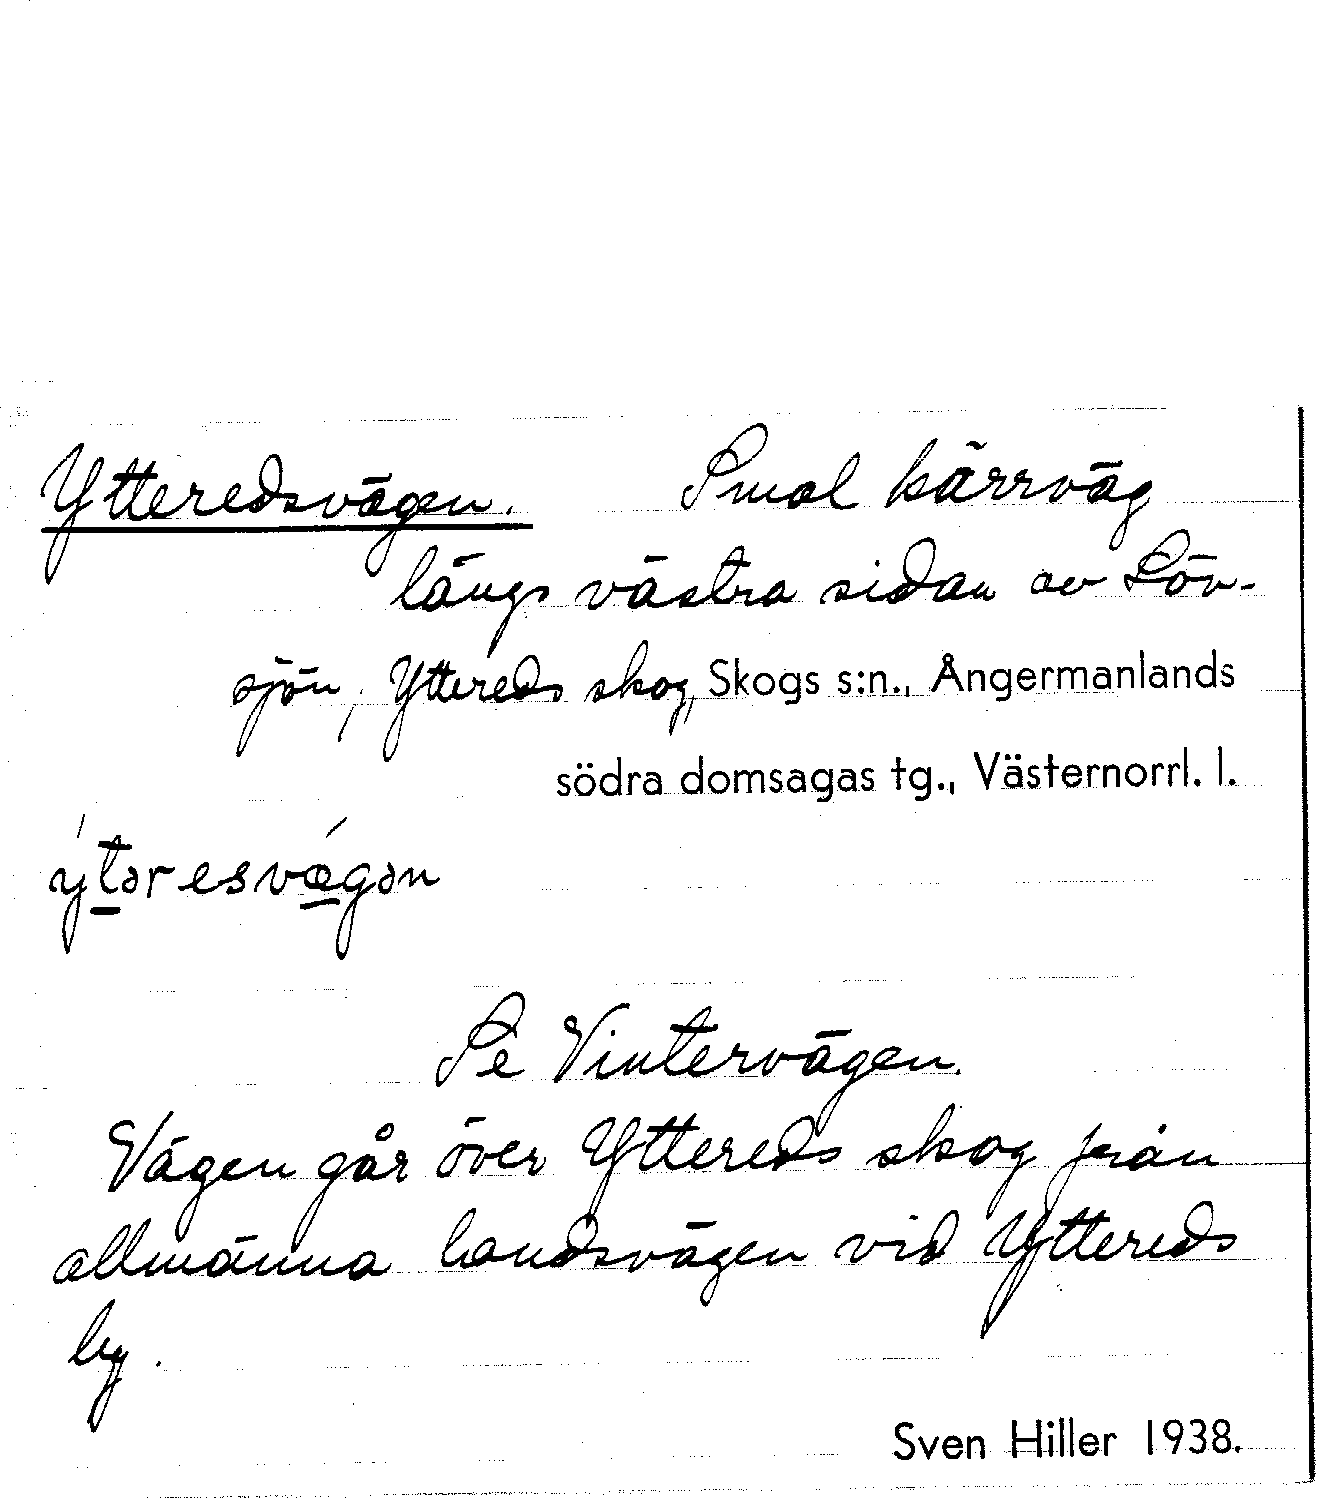 Ytteredsvägen. Smal kärrväg
längs västra sidan av Löv-
sjön, Yttereds skog, Skogs s:n., Ångermanlands
södra domsagas tg., Västernorrl. l.
ýtəresvǽgən
Se Vintervägen.
Vägen går över Yttereds skog från
allmänna landsvägen vid Yttereds
by.
Sven Hiller 1938.